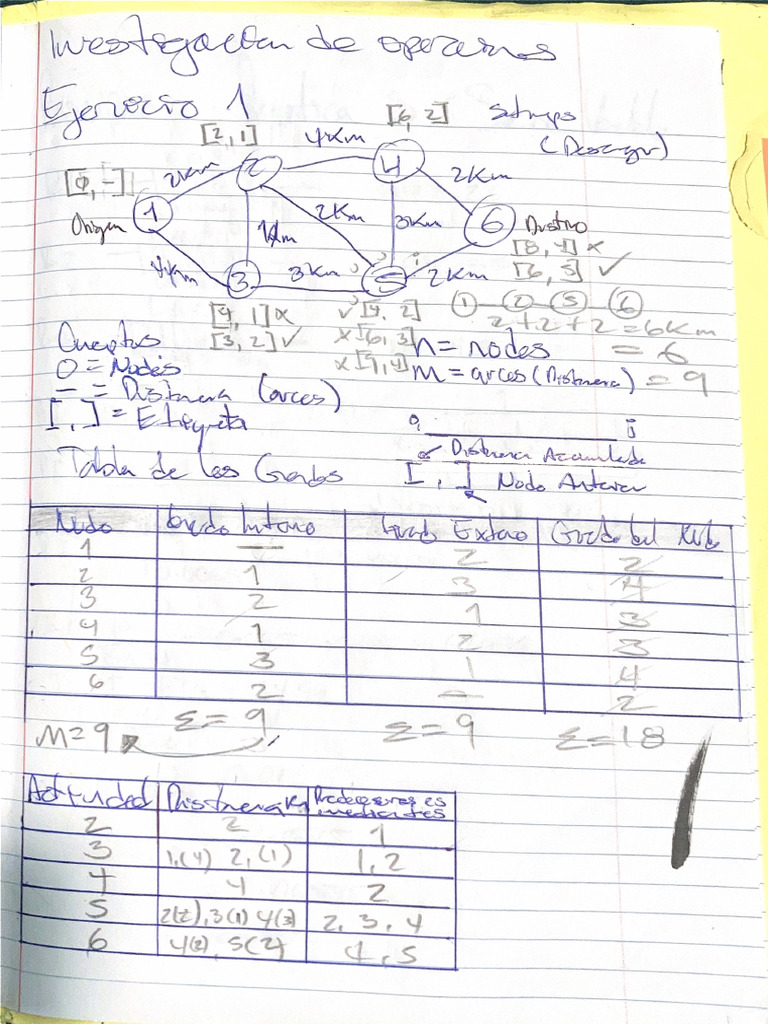 Investigacion de operaciones
Ejercicio 1
[6, 2]
[2, 1] 4Km
(Descargar)
[0, -] 2Km 2 4 2Km
1 2Km 3Km 6 Destino
Origen 1Km [8, 4] x
4Km 3 3Km 5 2Km [6, 5] ✓
[4, 1] x ✓ [4, 2] 1 2 5 6
[3, 2] ✓ x [6, 3] 2+2+2 = 6Km
x [9, 4] n = nodes = 6
O = Nodos m = arcos (Distancia) = 9
— = Distancia (arcos)
[ , ] = Etiqueta
Distancia Acumulada
Tabla de los Grados [ , ] Nodo Anterior
Nodo Grado Interno Grado Externo Grado del Nodo
1 — 2 2
2 1 3 4
3 2 1 3
4 1 2 3
5 3 1 4
6 2 — 2
M=9 Σ=9 Σ=9 Σ=18
Actividad Distancia Km Predecesores inmediatos
2 2 1
3 1,(4) 2,(1) 1,2
4 4 2
5 2(2),3(1) 4(3) 2, 3, 4
6 4(2), 5(2) 4,5